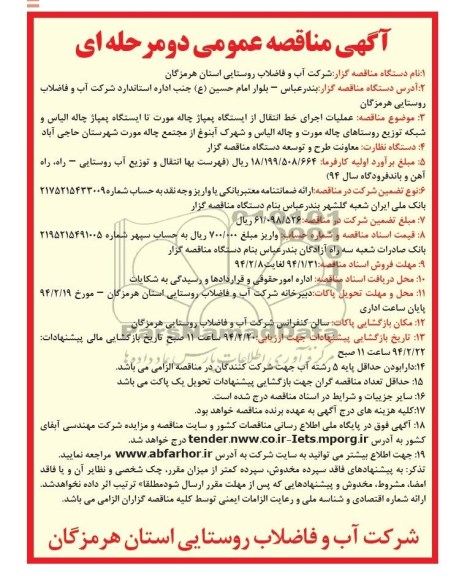 آگهی مناقصه عمومی دومرحله ای
۱:نام دستگاه مناقصه گزار:شرکت آب و فاضلاب روستایی استان هرمزگان
۲:آدرس دستگاه مناقصه گزار:بندرعباس – بلوار امام حسین (ع) جنب اداره استاندارد شرکت آب و فاضلاب
روستایی هرمزگان
۳: موضوع مناقصه: عملیات اجرای خط انتقال از ایستگاه پمپاژ چاله مورت تا ایستگاه پمپاژ چاله الیاس و
شبکه توزیع روستاهای چاله مورت و چاله الیاس و شهرک آبنوغ از مجتمع چاله مورت شهرستان حاجی آباد
۴: دستگاه نظارت: معاونت طرح و توسعه دستگاه مناقصه گزار
۵: مبلغ برآورد اولیه کارفرما: ۱۸/۱۹۹/۵۰۸/۶۶۴ ریال (فهرست بها انتقال و توزیع آب روستایی – راه، راه
آهن و باندفرودگاه سال ۹۴)
۶:نوع تضمین شرکت در مناقصه:ارائه ضمانتنامه معتبربانکی یا واریز وجه نقد به حساب شماره ۲۱۷۵۲۱۵۴۳۳۰۰۹
بانک ملی ایران شعبه گلشهر بندرعباس بنام دستگاه مناقصه گزار
۷: مبلغ تضمین شرکت در مناقصه:۶۱/۰۹۸/۵۲۶ ریال
۸: قیمت اسناد مناقصه و شماره حساب: واریز مبلغ ۷۰۰/۰۰۰ ریال به حساب سپهر شماره ۲۱۹۵۲۱۵۴۹۱۰۰۵
بانک صادرات شعبه سه راه آزادگان بندرعباس بنام دستگاه مناقصه گزار
۹: مهلت فروش اسناد مناقصه:۹۴/۱/۳۱ لغایت۹۴/۲/۸
۱۰: محل دریافت اسناد مناقصه: اداره امورحقوقی و قراردادها و رسیدگی به شکایات
۱۱: محل و مهلت تحویل پاکات:دبیرخانه شرکت آب و فاضلاب روستایی استان هرمزگان – مورخ ۹۴/۲/۱۹
پایان ساعت اداری
۱۲: مکان بازگشایی پاکات: سالن کنفرانس شرکت آب و فاضلاب روستایی هرمزگان
۱۳: تاریخ بازگشایی پیشنهادات جهت ارزیابی:۹۴/۲/۲۰ ساعت ۱۱ صبح تاریخ بازگشایی مالی پیشنهادات:
۹۴/۲/۲۲ ساعت ۱۱ صبح
۱۴:دارابودن حداقل پایه ۵ رشته آب جهت شرکت کنندگان در مناقصه الزامی می باشد.
۱۵: حداقل تعداد مناقصه گران جهت بازگشایی پیشنهادات تحویل یک پاکت می باشد
۱۶: سایر جزییات و شرایط در اسناد مناقصه درج شده است.
۱۷:کلیه هزینه های درج آگهی به عهده برنده مناقصه خواهد بود.
۱۸: آگهی فوق در پایگاه ملی اطلاع رسانی مناقصات کشور و سایت مناقصه و مزایده شرکت مهندسی آبفای
کشور به آدرس tender.nww.co.ir-Iets.mporg.ir درج خواهد شد.
۱۹: جهت اطلاع بیشتر می توانید به سایت شرکت به آدرس www.abfarhor.ir مراجعه نمایید.
تذکر: به پیشنهادهای فاقد سپرده مخدوش، سپرده کمتر از میزان مقرر، چک شخصی و نظایر آن و یا فاقد
امضا، مشروط، مخدوش و پیشنهادهایی که پس از مهلت مقرر ارسال شودمطلقاً ترتیب اثر داده نخواهدشد.
ارائه شماره اقتصادی و شناسه ملی و رعایت الزامات ایمنی توسط کلیه مناقصه گزاران الزامی می باشد.
شرکت آب و فاضلاب روستایی استان هرمزگان